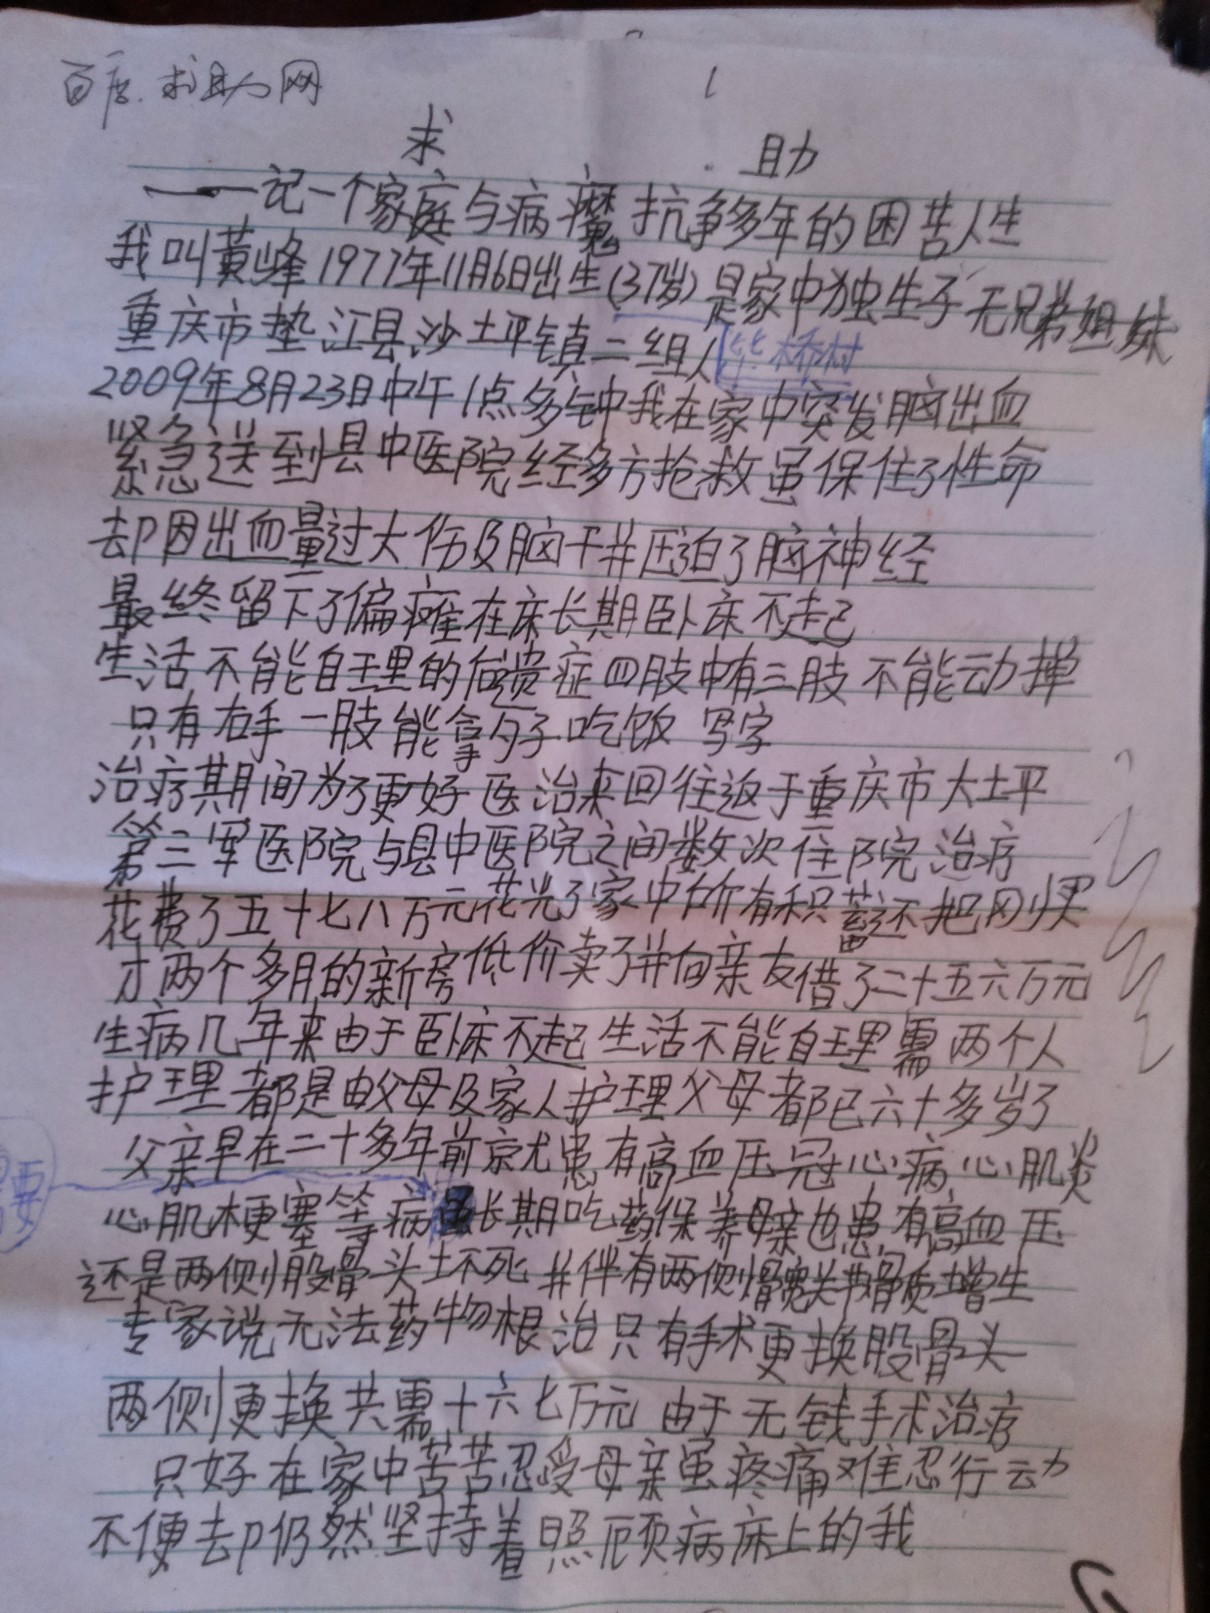 百度.求助网
1
求 助
——记一个家庭与病魔抗争多年的困苦人生
我叫黄峰1977年11月6日出生(37岁)是家中独生子无兄弟姐妹
重庆市垫江县沙坪镇二组人毕桥村
2009年8月23日中午1点多钟我在家中突发脑出血
紧急送到县中医院经多方抢救虽保住了性命
却因出血量过大伤及脑干并压迫了脑神经
最终留下了偏瘫在床长期卧床不起
生活不能自理的后遗症四肢中有三肢不能动掸
只有右手一肢能拿勺子吃饭写字
治疗期间为了更好医治来回往返于重庆市大坪
第三军医院与县中医院之间数次住院治疗
花费了五十七八万元花光了家中所有积蓄还把刚买
才两个多月的新房低价卖了并向亲友借了二十五六万元
生病几年来由于卧床不起生活不能自理需两个人
护理都是由父母及家人护理父母都已六十多岁了
父亲早在二十多年前就患有高血压冠心病心肌炎
心肌梗塞等病长期吃药保养母亲也患有高血压
需要
还是两侧股骨头坏死并伴有两侧髋关节骨质增生
专家说无法药物根治只有手术更换股骨头
两侧更换共需十六七万元由于无钱手术治疗
只好在家中苦苦忍受母亲虽疼痛难忍行动
不便却仍然坚持着照顾病床上的我